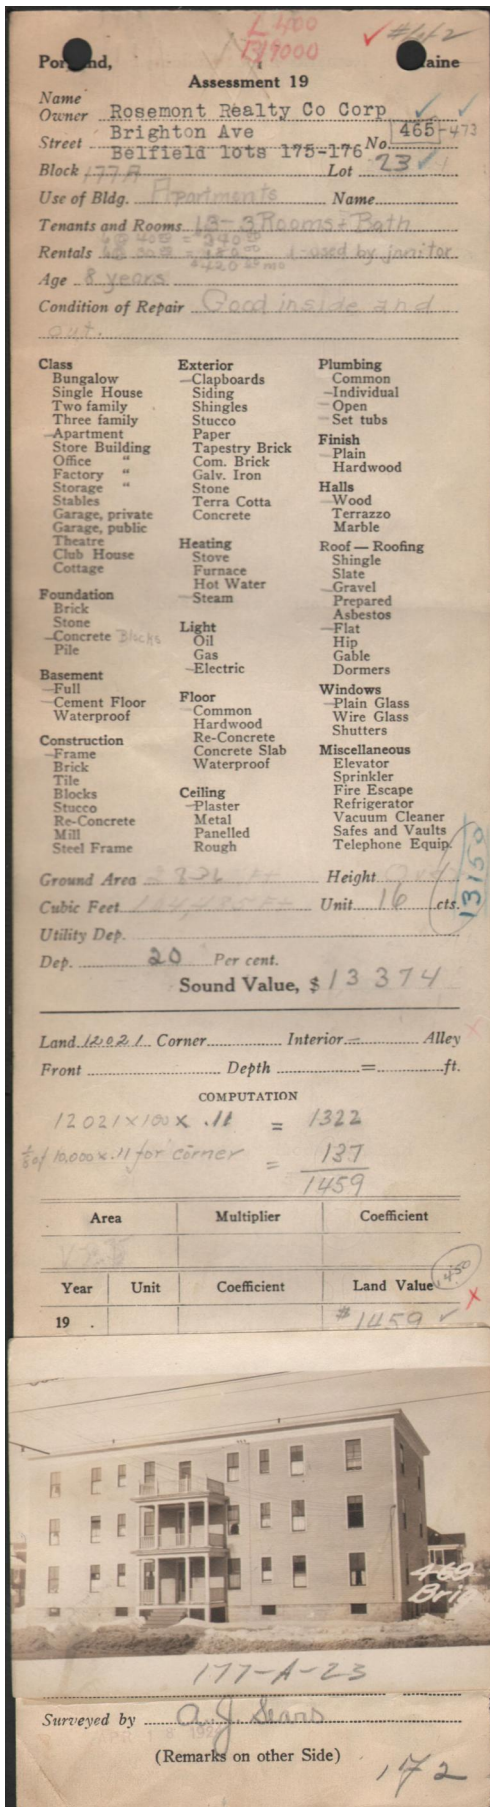 L 400
B 19000
Portland, Maine
Assessment 19
Name
Owner Rosemont Realty Co Corp
Street Brighton Ave No. 465-473
Belfield lots 175-176
Block 177A Lot 23
Use of Bldg. Apartments Name
Tenants and Rooms 13-3 Rooms + Bath
Rentals 1-used by janitor
Age 8 years
Condition of Repair Good inside and
out.
Class
Bungalow
Single House
Two family
Three family
Apartment
Store Building
Office "
Factory "
Storage "
Stables
Garage, private
Garage, public
Theatre
Club House
Cottage
Foundation
Brick
Stone
Concrete Blocks
Pile
Basement
Full
Cement Floor
Waterproof
Construction
Frame
Brick
Tile
Blocks
Stucco
Re-Concrete
Mill
Steel Frame
Exterior
Clapboards
Siding
Shingles
Stucco
Paper
Tapestry Brick
Com. Brick
Galv. Iron
Stone
Terra Cotta
Concrete
Heating
Stove
Furnace
Hot Water
Steam
Light
Oil
Gas
Electric
Floor
Common
Hardwood
Re-Concrete
Concrete Slab
Waterproof
Ceiling
Plaster
Metal
Panelled
Rough
Plumbing
Common
Individual
Open
Set tubs
Finish
Plain
Hardwood
Halls
Wood
Terrazzo
Marble
Roof — Roofing
Shingle
Slate
Gravel
Prepared
Asbestos
Flat
Hip
Gable
Dormers
Windows
Plain Glass
Wire Glass
Shutters
Miscellaneous
Elevator
Sprinkler
Fire Escape
Refrigerator
Vacuum Cleaner
Safes and Vaults
Telephone Equip.
13150
Ground Area Height
Cubic Feet Unit 16 cts.
Utility Dep.
Dep. 20 Per cent.
Sound Value, $ 13374
Land 12021 Corner Interior Alley
Front Depth = ft.
COMPUTATION
12021 x 100 x .11 = 1322
of 10,000 x .11 for corner = 137
1459
Area Multiplier Coefficient
1450
Year Unit Coefficient Land Value
19 . $1459
469
Brig
177-A-23
Surveyed by A. J. Sears
(Remarks on other Side)
172